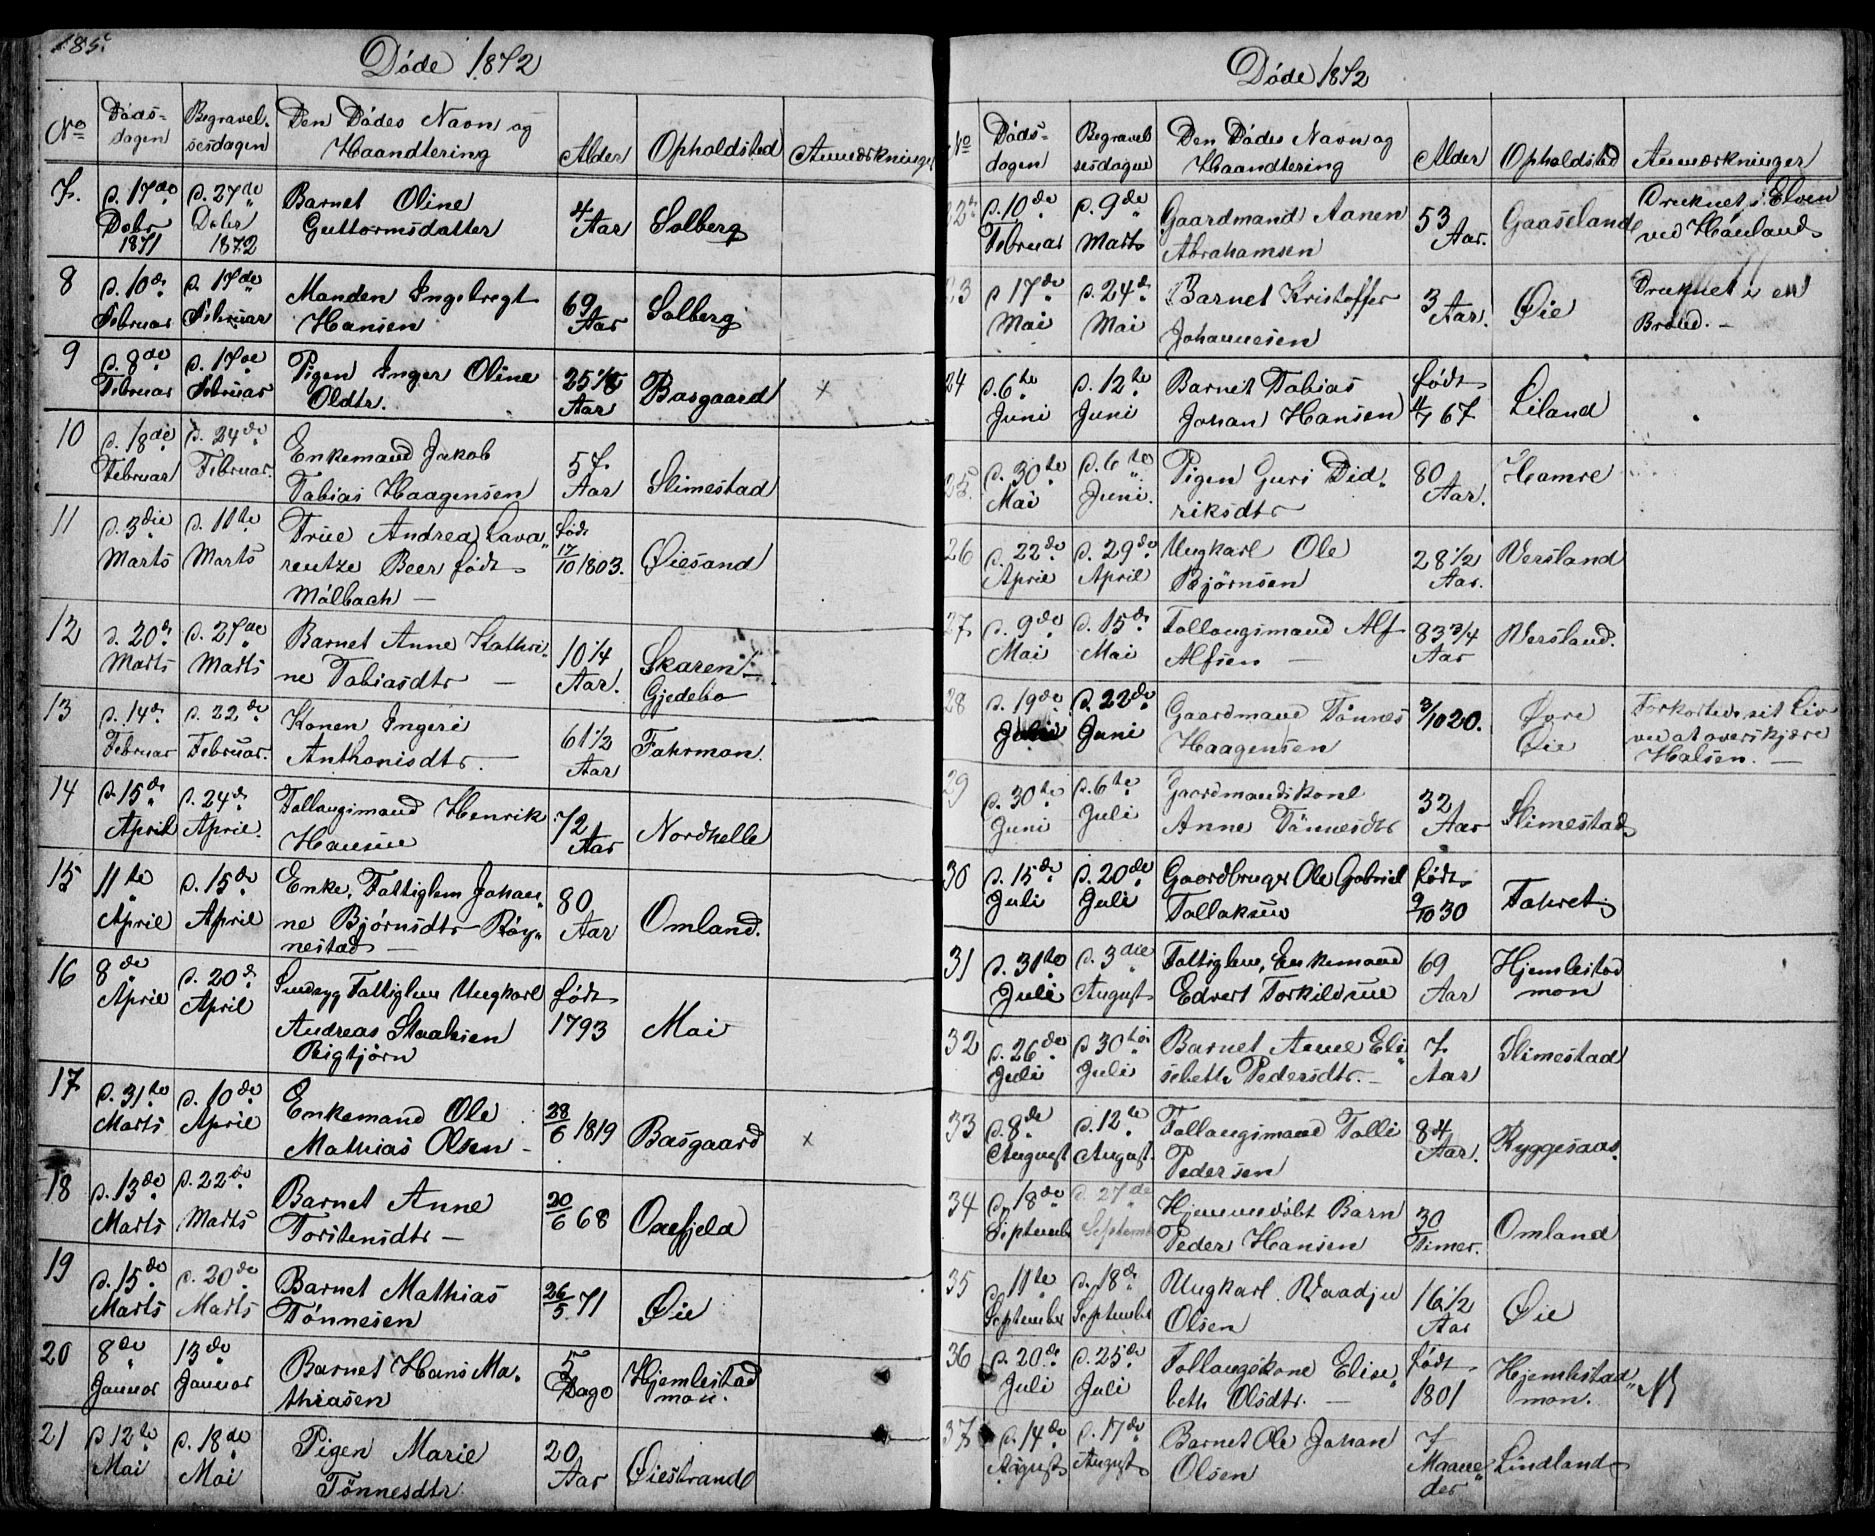 185.
Døde 1872
No
Døds-
dagen
Begravel-
sesdagen
Den Dødes Navn og
Haandtering
Alder
Opholdsted
Anmærkninger
7.
d. 17de
Debr
1871
d. 27de
Debr
1872
Barnet Oline
Guttormsdatter
4
Aar
Solberg
8
d. 10de
Februar
d. 17de
Februar
Manden Ingebregt
Hansen
69
Aar
Solberg
9
d. 8de
Februar
d. 17de
Februar
Pigen Inger Oline
Oldtr.
25 1/2
Aar
Basgaard
×
10
d. 18de
Februar
d. 24de
Februar
Enkemand Jakob
Tobias Haagensen
57
Aar
Slimestad
11
d. 3die
Marts
d. 11te
Marts
Frue Andrea Lava„
rentze Beer født
Målbach —
født
17/10 1803.
Øiesand
12
d. 20de
Marts
d. 27de
Marts
Barnet Anne Kathri„
ne Tobiasdtr —
10 1/4
Aar.
Skaren
Gjedebo
13
d. 14de
Februar
d. 22de
Februar.
Konen Ingeri
Anthonisdtr. —
61 1/2
Aar
Fahrmon.
14
d. 15de
April
d. 24de
April.
Follaugsmand Henrik
Hansen
72
Aar
Nordhelle
15
11te
April
d. 15de
April
Enke, Fattiglem Johan„
ne Bjørnsdtr Røy„
nestad —
80
Aar
Omland.
16
8de
April
d. 20de
April
Sindsyg Fattiglem Ungkarl
Andreas Staalesen
Rigtjørn
født
1793
Mai
17
d. 31te
Marts
d. 10de
April
Enkemand Ole
Mathias Olsen —
28/6 1819
Basgaard
×
18
d. 13de
Marts
d. 22de
Marts
Barnet Anne
Torstensdtr —
20/6 68
Oxefjeld
19
d. 15de
Marts
d. 20de
Marts
Barnet Mathias
Tønnesen
26/5 71
Øie
20
8de
Januar
13de
Januar
Barnet Hans Ma„
thiasen
5
Dage
Hjemlestad
mon.
21
d. 12te
Mai
d. 18de
Mai
Pigen Marie
Tønnesdtr
20
Aar
Øiestrand
Døde 1872
No
Døds-
dagen
Begravel
sesdagen
Den Dødes Navn og
Haandtering
Alder
Opholdsted
Anmærkninger
22
d. 10de
Februar
d. 9de
Marts
Gaardmand Aanen
Abrahamsen
53
Aar.
Gaaseland
Druknet i Elven
ved Håuland
23
d 17de
Mai
d. 24de
Mai
Barnet Kristoffer
Johannesen
3
Aar.
Øie
Druknet i en
Brønd. —
24
d. 6te
Juni
d. 12te
Juni
Barnet Tobias
Johan Hansen
født
4/7 67
Liland
25.
d. 30te
Mai
d. 6te
Juni.
Pigen Guri Did„
riksdtr
80
Aar.
Hamre
26
d. 22de
April
d. 29de
April
Ungkarl Ole
Bjørnsen
28 1/2
Aar.
Versland
27
d. 9de
Mai
d. 15de
Mai
Follaugsmand Alf
Alfsen —
83 3/4
Aar
Versland.
28
d. 19de
d. 22de
Juni
Gaardmand Tønnes
Haagensen
3/10 20.
Øvre
Øie
Forkortede sit Liv
ved at overskjære
Halsen. —
29
d. 30te
Juni
d. 6te
Juli
Gaardmandskone
Anne Tønnesdtr
32
Aar
Slimestad
30
d. 15de
Juli
d. 20de
Juli
Gaardbruger Ole Gabriel
Tollaksen
født
9/10 30
Fahret
31
d. 31te
Juli
d. 3die
August
Fattiglem, Enkemand
Edvert Torkildsen
69
Aar
Hjemlestad
mon
32
d. 26de
Juli
d 30te
Juli
Barnet Anne Eli„
sebeth Pedersdtr. —
7
Aar
Slimestad
33
d. 8de
August
d. 12te
August.
Follaugsmand Tolli
Pedersen
84
Aar.
Ryggesaas.
34
d. 18de
Septembr
d. 27de
Septembr
Hjemmedøbt Barn
Peder Hansen
30
Timer.
Omland
35
d. 11te
September
d. 18de
September
Ungkarl Vaadju
Olsen
16 1/2
Aar
Øie
36
d. 20de
Juli
d. 25de
Juli
Follaugskone Elise„
beth Olsdtr. —
født
1801
Hjemlestad„
mon.
37
d. 14de
August
d. 17de
August
Barnet Ole Johan
Olsen
7
Maane„
der
Lindland